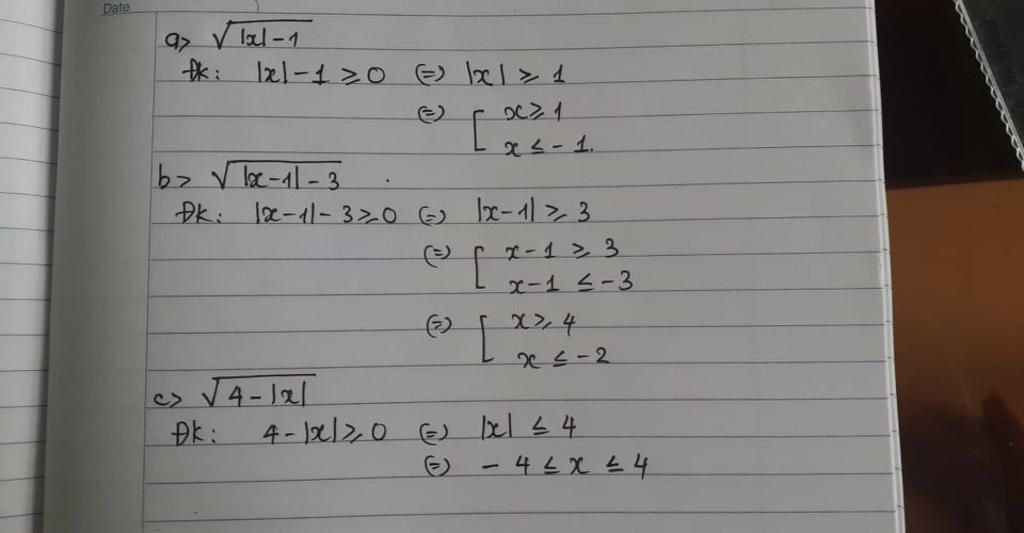 Date
a> √|x|-1
ĐK: |x|-1 ≥ 0 (=) |x| ≥ 1
(=) [ x ≥ 1
x ≤ -1.
b> √|x-1|-3
ĐK: |x-1|-3 ≥ 0 (=) |x-1| ≥ 3
(=) [ x-1 ≥ 3
x-1 ≤ -3
(=) [ x ≥ 4
x ≤ -2
c> √4-|x|
ĐK: 4-|x| ≥ 0 (=) |x| ≤ 4
(=) -4 ≤ x ≤ 4